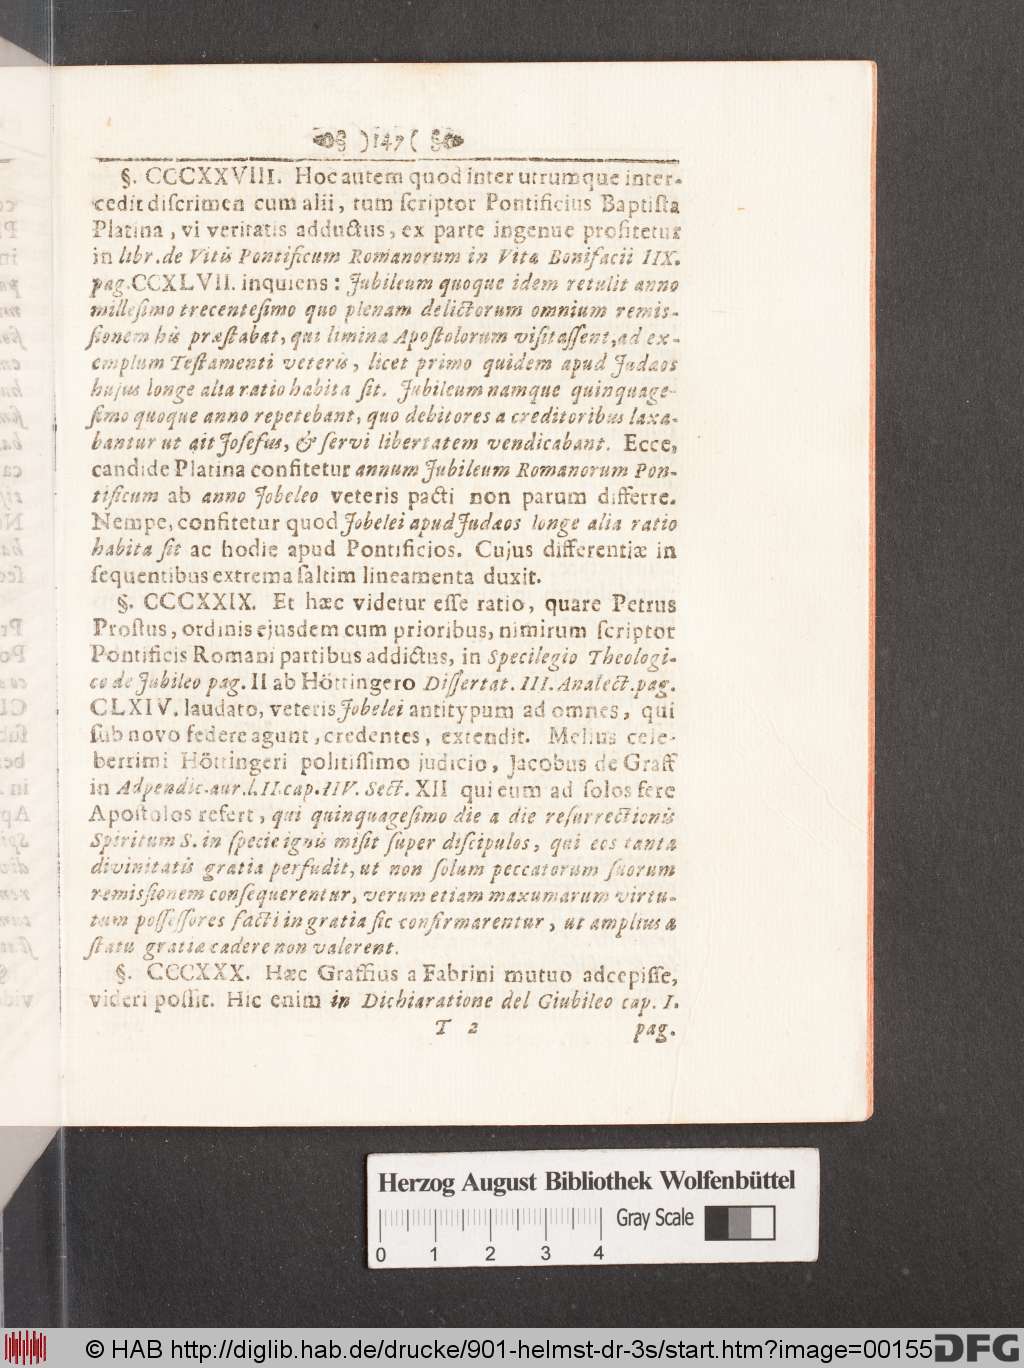 )147(
§. CCCXXVIII. Hoc autem quod inter utrumque inter-
cedit discrimen cum alii, tum scriptor Pontificius Baptista
Platina, vi veritatis adductus, ex parte ingenue profitetur
in libr. de Vitis Pontificum Romanorum in Vita Bonifacii IIX.
pag. CCXLVII. inquiens: Jubileum quoque idem retulit anno
millesimo trecentesimo quo plenam delictorum omnium remis-
sionem his præstabat, qui limina Apostolorum visitassent, ad ex-
emplum Testamenti veteris, licet primo quidem apud Judæos
hujus longe alta ratio habita sit. Jubileum namque quinquage-
simo quoque anno repetebant, quo debitores a creditoribus laxa-
bantur ut ait Josefus, & servi libertatem vendicabant. Ecce,
candide Platina confitetur annum Jubileum Romanorum Pon-
tificum ab anno Jobeleo veteris pacti non parum differre.
Nempe, confitetur quod Jobelei apud Judæos longe alia ratio
habita sit ac hodie apud Pontificios. Cujus differentiæ in
sequentibus extrema saltim lineamenta duxit.
§. CCCXXIX. Et hæc videtur esse ratio, quare Petrus
Prostus, ordinis ejusdem cum prioribus, nimirum scriptor
Pontificis Romani partibus addictus, in Specilegio Theologi-
co de Jubileo pag. II ab Höttingero Dissertat. III. Analect. pag.
CLXIV. laudato, veteris Jobelei antitypum ad omnes, qui
sub novo federe agunt, credentes, extendit. Melius cele-
berrimi Höttingeri politissimo judicio, Jacobus de Graff
in Adpendic. aur. l. II. cap. IIV. Sect. XII qui eum ad solos fere
Apostolos refert, qui quinquagesimo die a die resurrectionis
Spiritum S. in specie ignis misit super discipulos, qui eos tanta
divinitatis gratia perfudit, ut non solum peccatorum suorum
remissionem consequerentur, verum etiam maxumarum virtu-
tum possessores facti in gratia sic confirmarentur, ut amplius a
statu gratiæ cadere non valerent.
§. CCCXXX. Hæc Graffius a Fabrini mutuo adcepisse,
videri possit. Hic enim in Dichiaratione del Giubileo cap. I.
T 2 pag.
Herzog August Bibliothek Wolfenbüttel
Gray Scale
0 1 2 3 4
© HAB http://diglib.hab.de/drucke/901-helmst-dr-3s/start.htm?image=00155
DFG